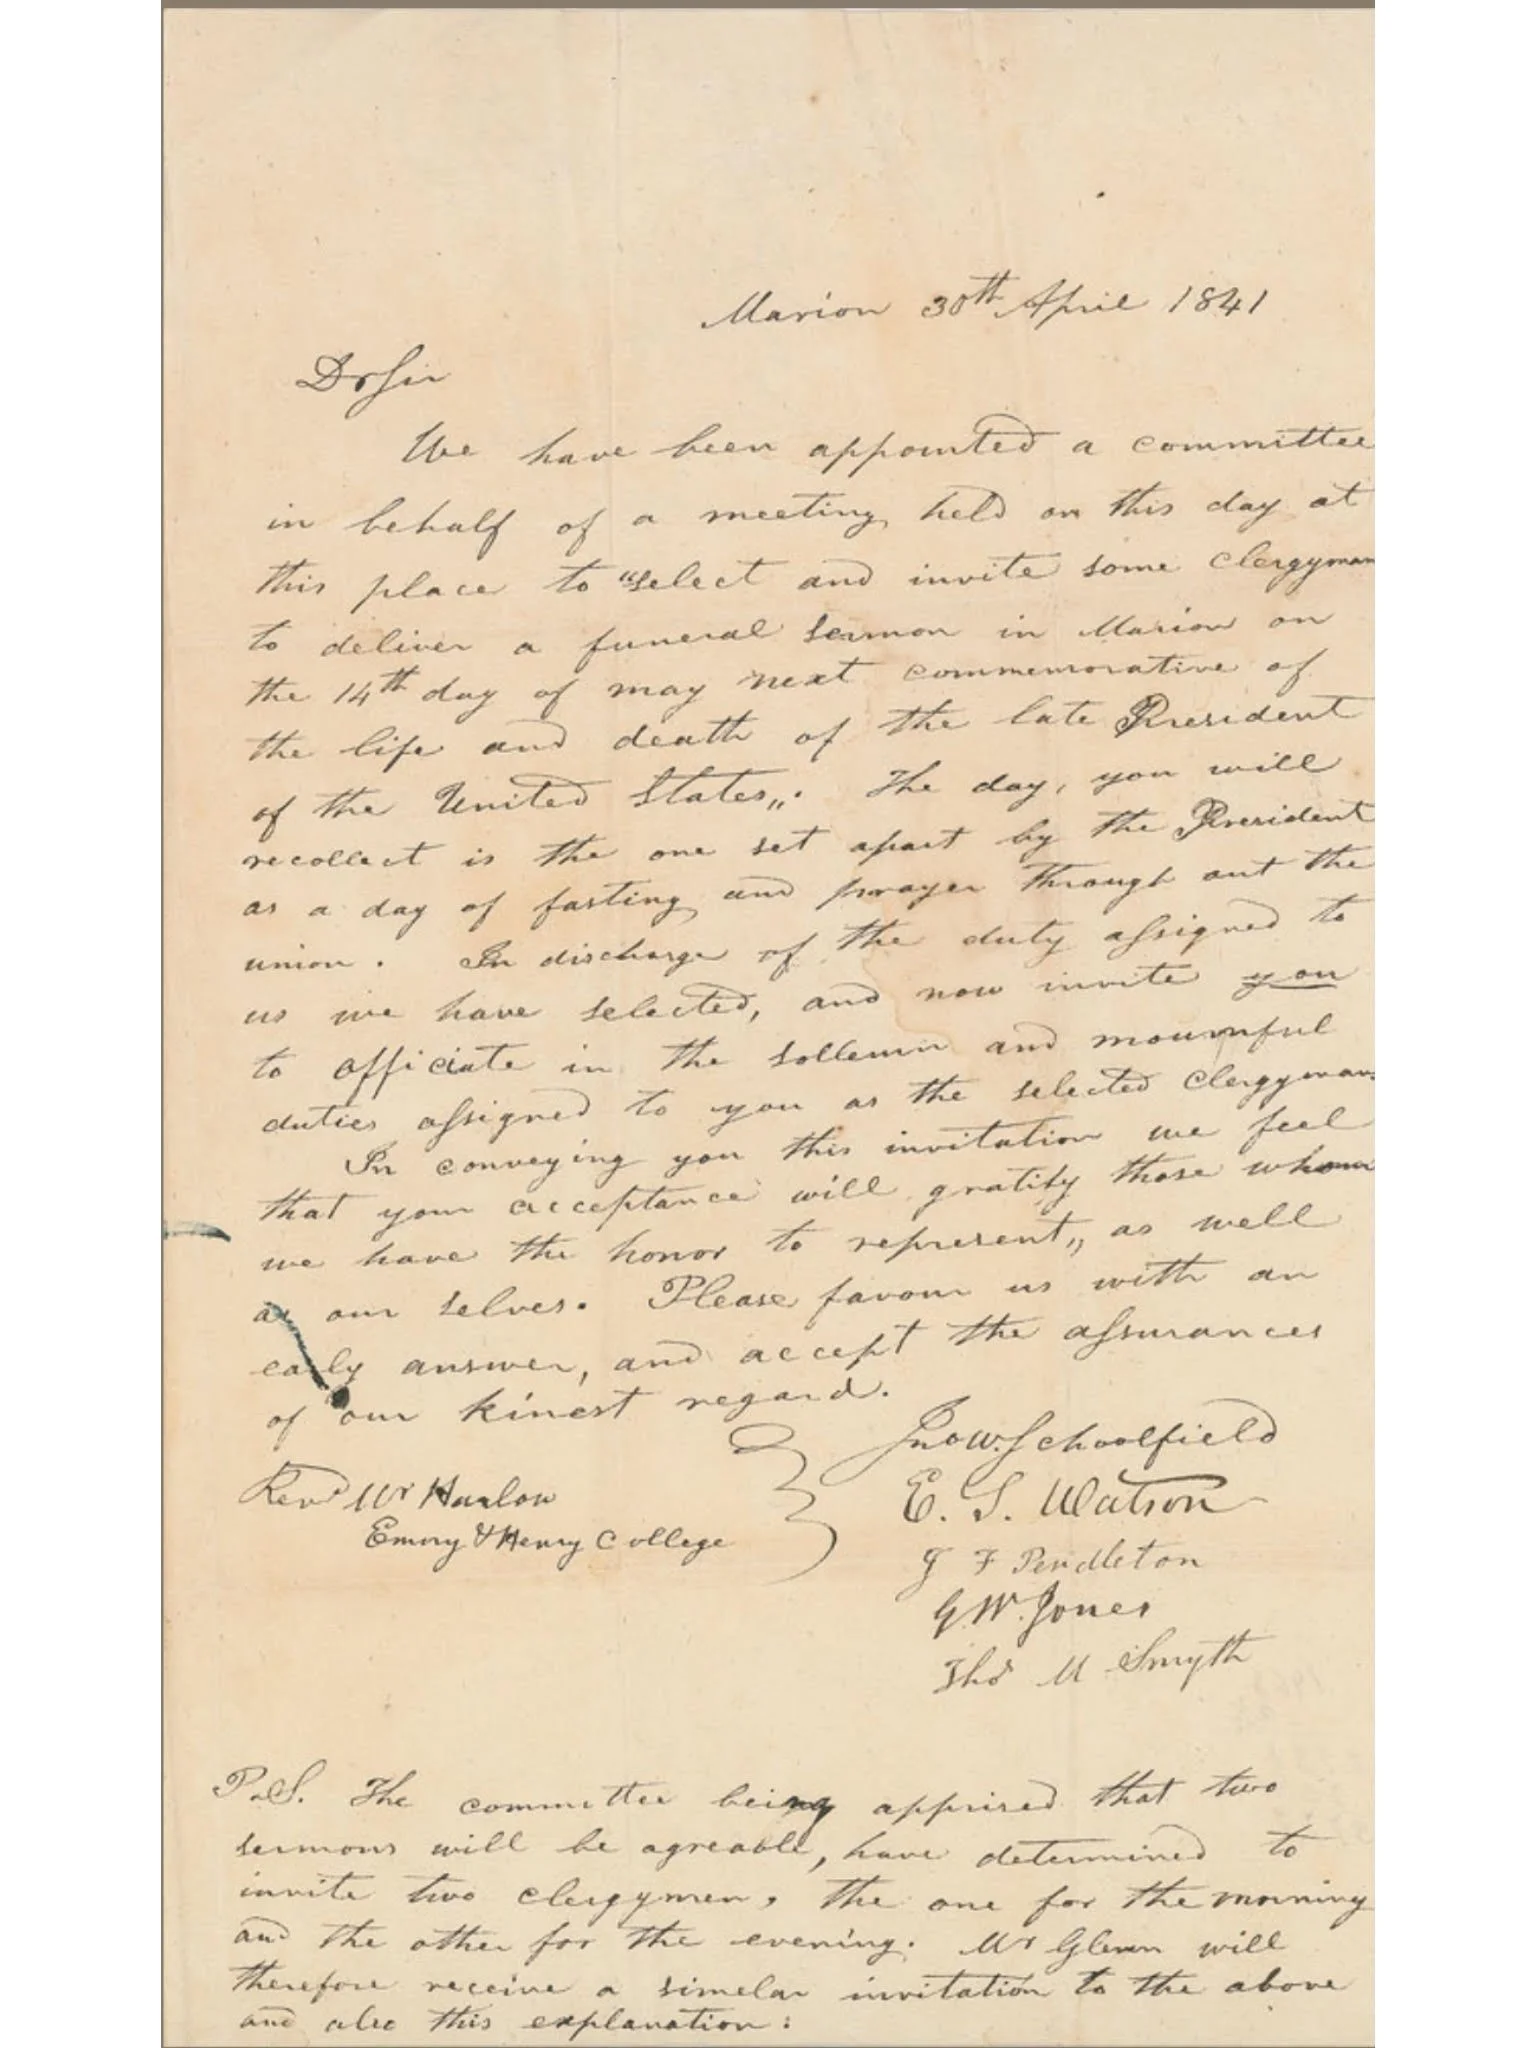 Marion 30th April 1841
Dr Sir
We have been appointed a committee
in behalf of a meeting held on this day at
this place to "select and invite some clergyman
to deliver a funeral sermon in Marion on
the 14th day of may next commemorative of
the life and death of the late President
of the United States„. The day, you will
recollect is the one set apart by the President
as a day of fasting and prayer through out the
union. In discharge of the duty assigned to
us we have selected, and now invite you
to officiate in the sollemn and mournful
duties assigned to you as the selected clergyman.
In conveying you this invitation we feel
that your acceptance will gratify those whom
we have the honor to represent„ as well
as our selves. Please favour us with an
early answer, and accept the assurances
of our kinest regard.
Jno W. Schoolfield
Revd Mr Harlow
E. S. Watson
Emory & Henry College
J F Pendleton
G. W. Jones
Thos M Smyth
P.S. The committee being apprised that two
sermons will be agreable, have determined to
invite two clergymen, the one for the morning
and the other for the evening. Mr Glenn will
therefore receive a simelar invitation to the above
and also this explanation: